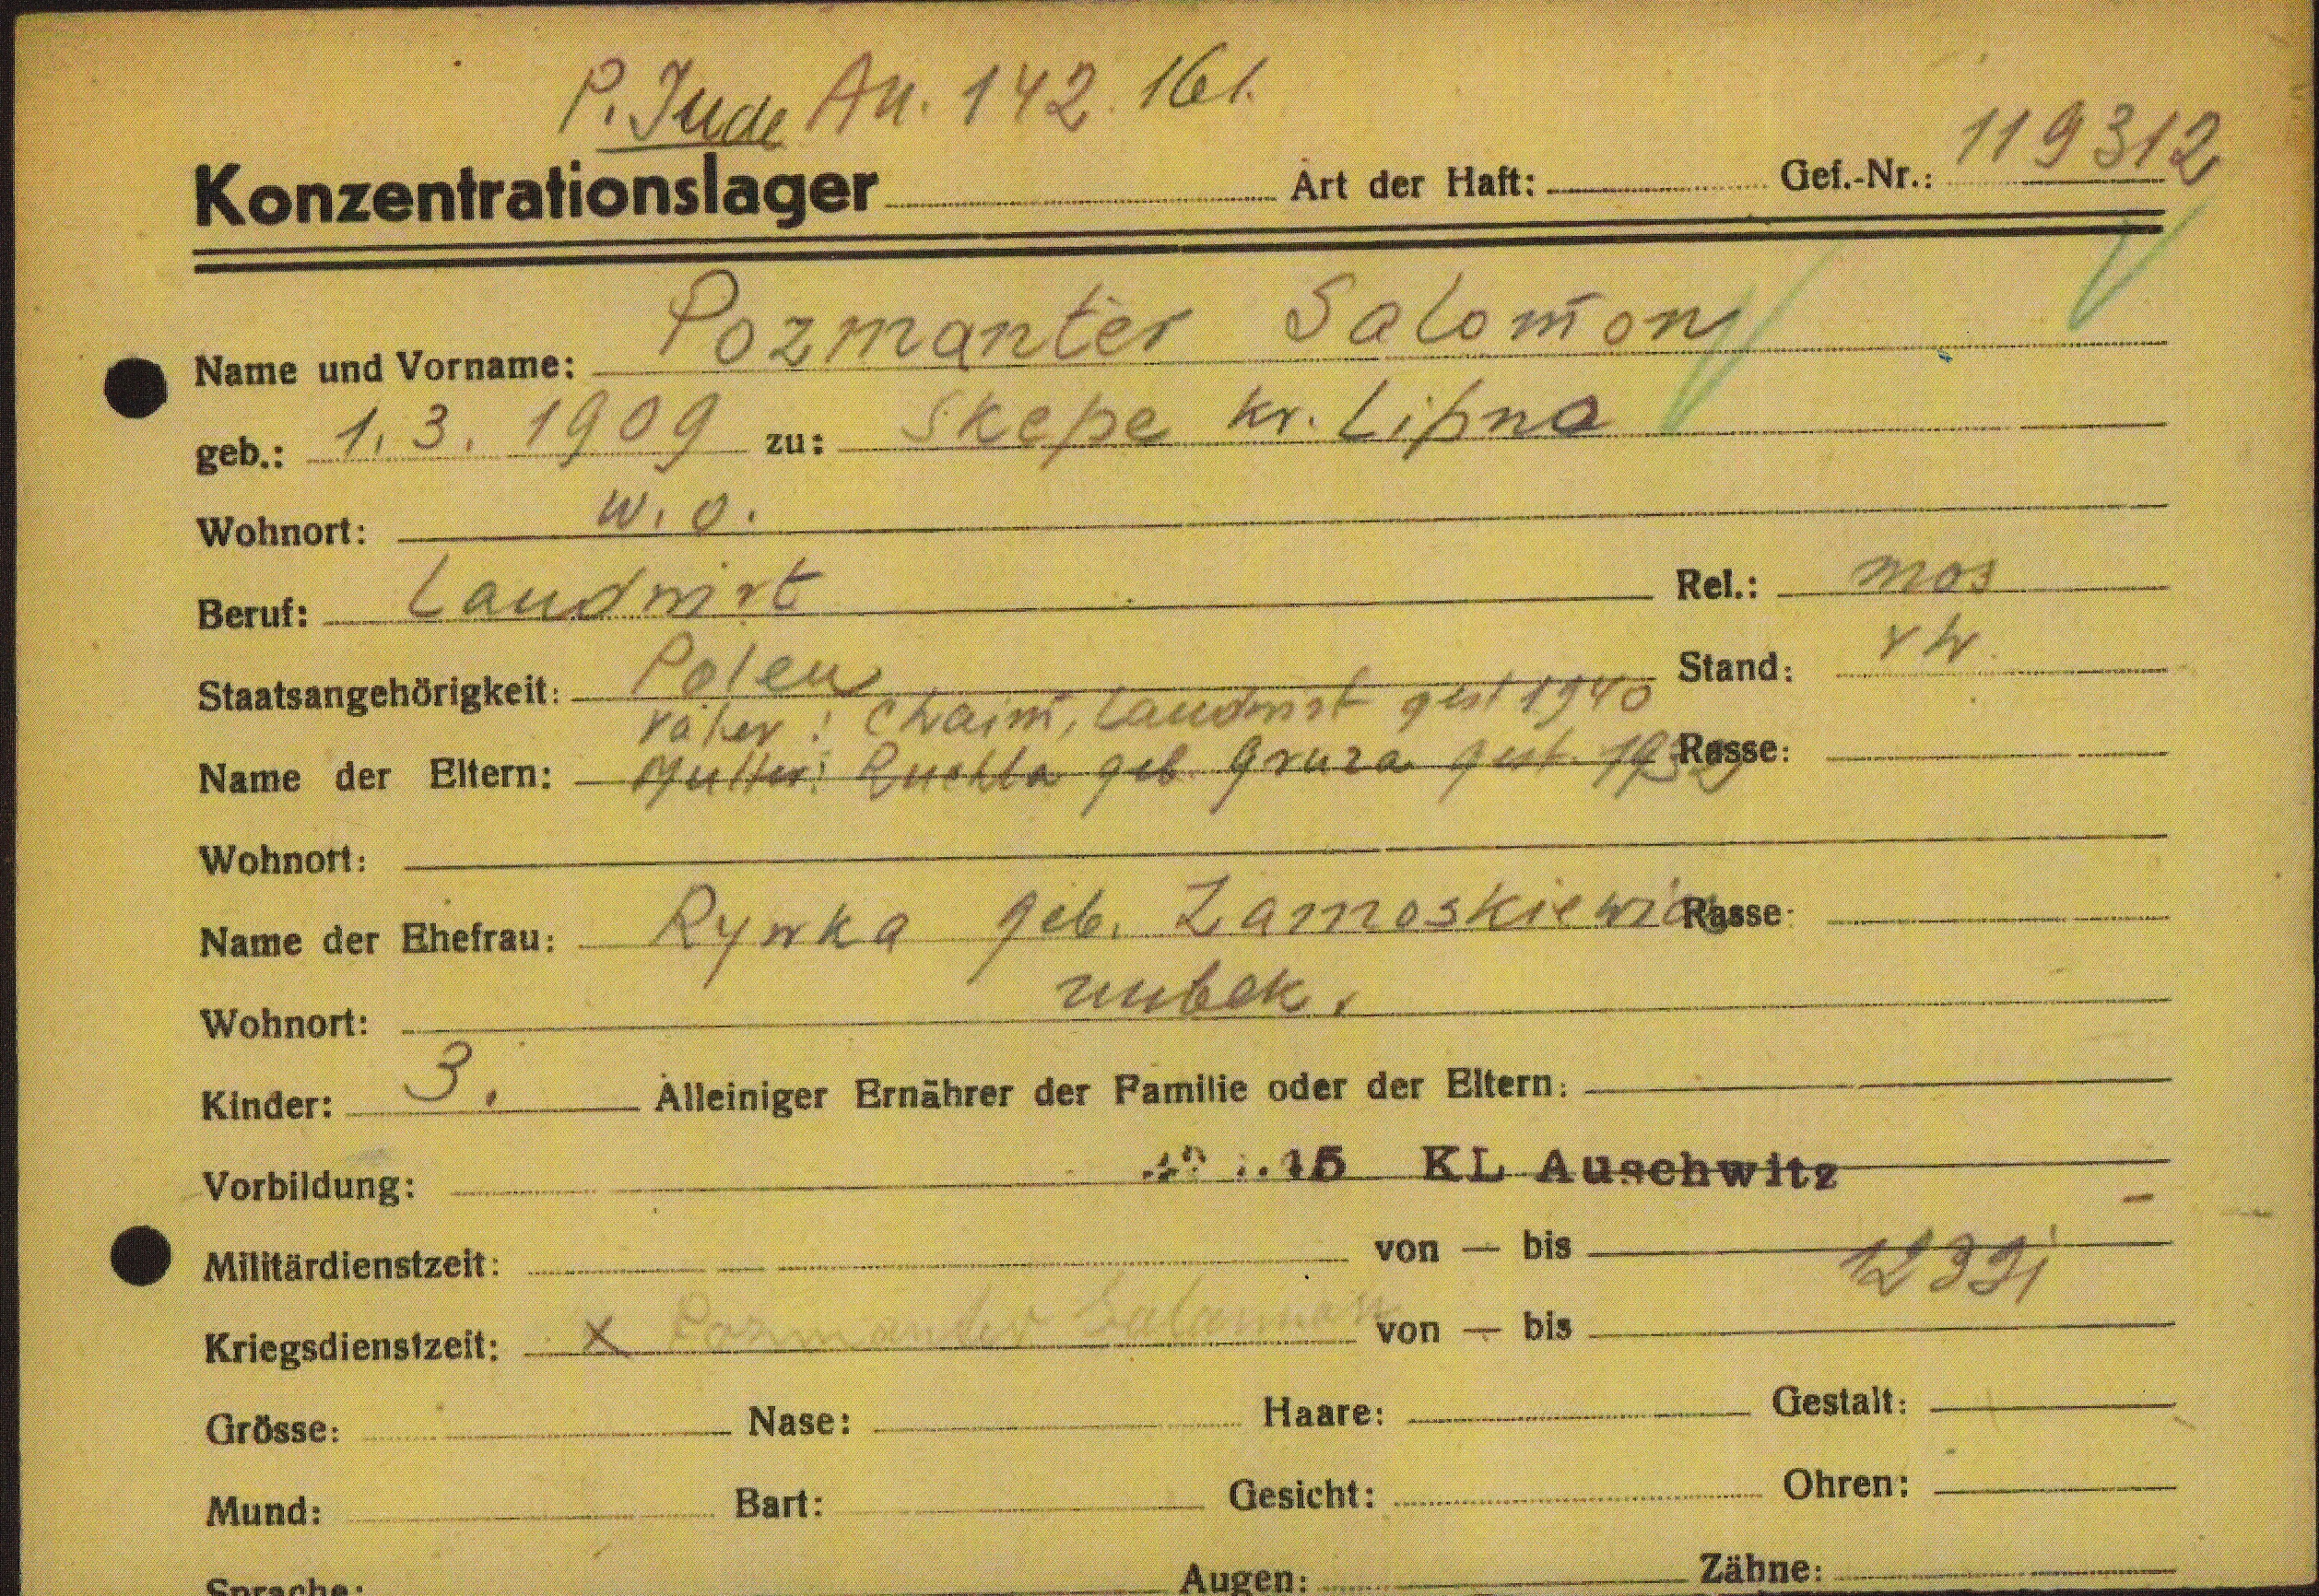 P. Jude An. 142. 161.
Konzentrationslager Art der Haft: Gef.-Nr.: 119312
Name und Vorname: Pozmanter Salomon
geb.: 1. 3. 1909 zu: Skepe kr. Lipno
Wohnort: w. o.
Beruf: Landwirt Rel.: mos
Staatsangehörigkeit: Polen Stand: vh.
Vater: Chaim, Landwirt gest 1940
Name der Eltern: Mutter: Ruchla geb. Gruza gest. 1932 Rasse:
Wohnort:
Name der Ehefrau: Rywka geb. Zamoskiewicz Rasse:
Wohnort: unbek.
Kinder: 3. Alleiniger Ernährer der Familie oder der Eltern:
Vorbildung: KL Auschwitz
Militärdienstzeit: von — bis
Kriegsdienstzeit: x Pozmanter Salomon von — bis
Grösse: Nase: Haare: Gestalt:
Mund: Bart: Gesicht: Ohren:
Sprache: Augen: Zähne: